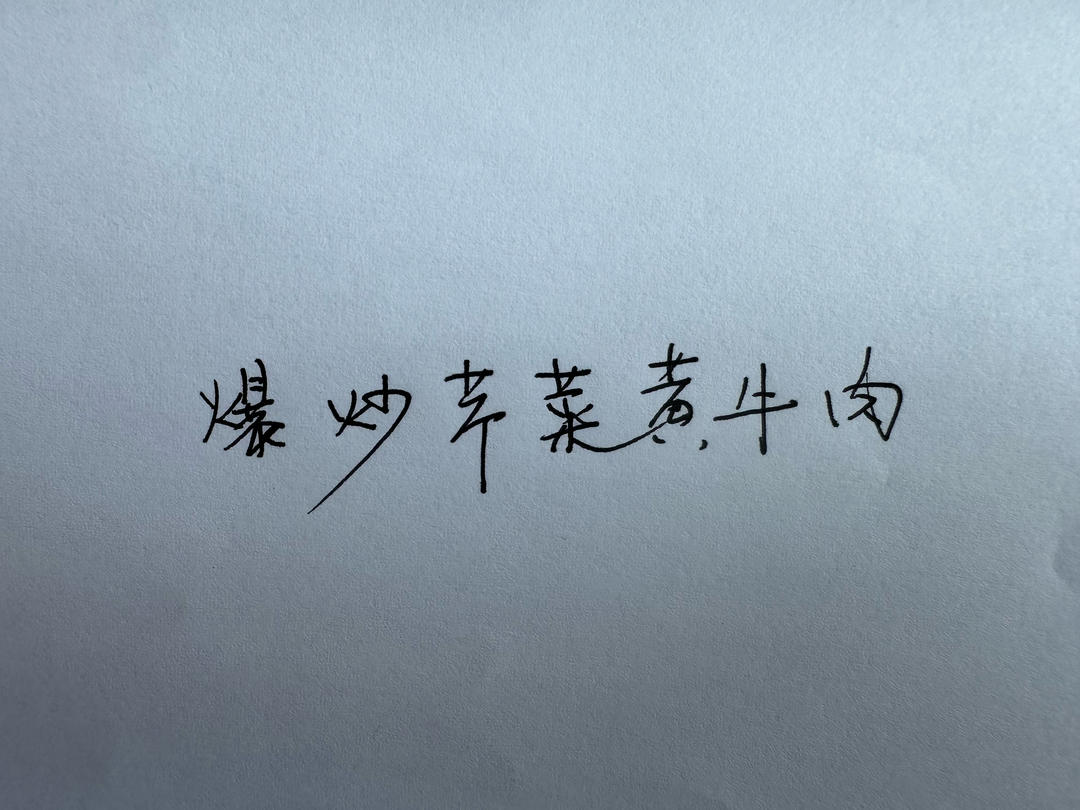 爆炒芹菜黄牛肉